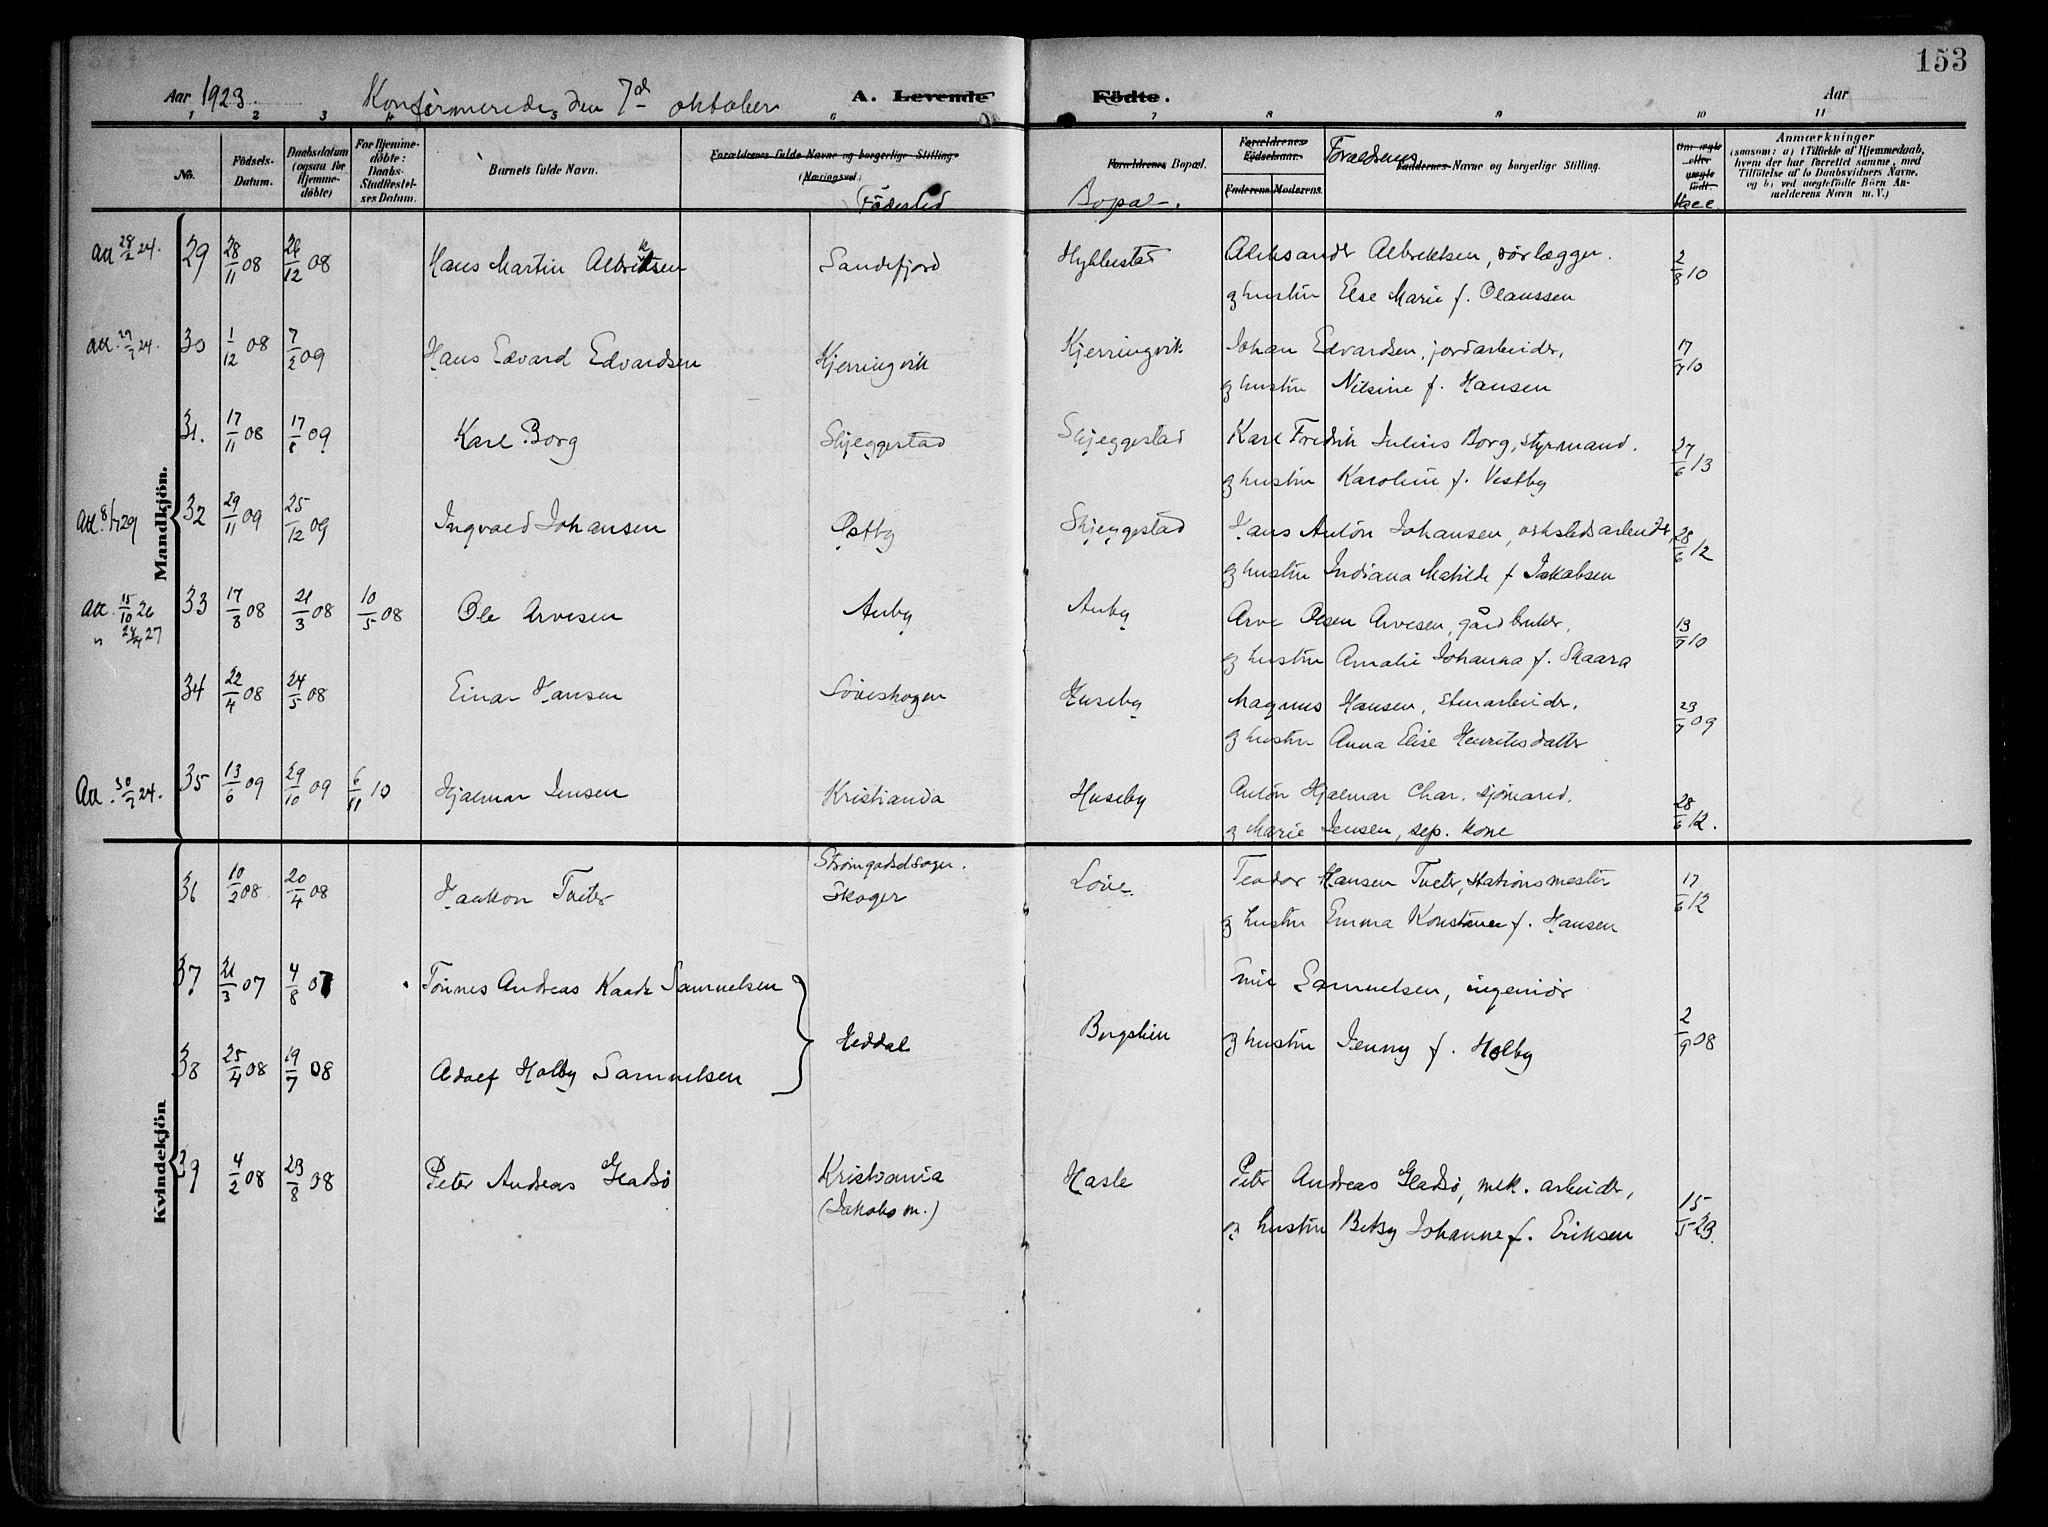 153
Aar 1923 Konfirmerede den 7de oktober A. Levende Födte. Aar
1 2 3 4 5 6 7 8 9 10 11
No. Födsels-Datum. Daabsdatum (ogsaa for Hjemme-döbte) For Hjemme-döbte: Daabs-Stadfæstel-ses Datum. Barnets fulde Navn. Forældrenes fulde Navne og borgerlige Stilling (Næringsvei) Födested Forældrenes Bopæl. Bopæl. Forældrenes Födselsaar. Faderens Moderens. Forældrenes Faddernes Navne og borgerlige Stilling. Om ægte eller uægte födt. Vacc. Anmærkninger (saasom: a) i Tilfælde af Hjemmedaab, hvem der har forrettet samme, med Tilföielse af to Daabsvidners Navne, og b) ved uægtefödte Börn An-melderens Navn m. V.)
Mandkjön.
Att 28/2 24. 29 28/11 08 26/12 08 Hans Martin Albrektsen Sandefjord Hyllestad Aleksander Albrektsen, rörlægger. 2/8 10
og hustru Else Marie f. Olaussen
att. 24. 30 1/12 08 7/2 09 Hans Edvard Edvardsen Kjerringvik Kjerringvik Johan Edvardsen, jordarbeider, 17/7 10
og hustru Nilsine f. Hansen
31. 17/11 08 17/ 09 Karl Borg Skjeggestad Skjeggestad Karl Fredrik Julius Borg, styrmand. 27/6 13
og hustru Karoline f. Vestby
Att. 8/ 29 32 29/11 09 25/12 09 Ingvald Johansen Østby Skjeggestad Hans Anton Johansen, verkstedsarbeider, 28/6 12
og hustru Indiana Matilde f Jakobsen
Att. 15/10 26 33 17/3 08 21/3 08 10/5 08 Ole Arvesen Auby Auby Arve Olsen Arvesen, gårdbruker, 13/7 10
" 24/4 27 og hustru Amalie Johanna f. Skaara
34 22/4 08 24/5 08 Einar Hansen Løveskogen Huseby Magnus Hansen, stenarbeider. 23/7 09
og hustru Anna Elise Henriksdatter
Att. 30/7 24. 35 13/6 09 29/10 09 6/11 10 Hjalmar Jensen Kristiania Huseby Anton Hjalmar Char. sjömand. 28/6 12.
og Marie Jensen, sep. kone
Kvindekjön
36 10/2 08 20/4 08 Haakon Tveter Strömgodset sogn. Skoger Løve Teodor Hansen Tveter, stationsmester 17/6 12
og hustru Emma Konstanse f. Hansen
37 21/3 07 4/8 07 Tönnes Andreas Kaade Samuelsen Emil Samuelsen, ingeniör
Heddal Bergslien og hustru Jenny f. Holby 2/9 08
38 25/4 08 19/7 08 Adolf Holby Samuelsen
39 4/2 08 23/8 08 Peter Andreas Gladsö Kristiania Hasle Peter Andreas Gladsö, mek. arbeider, 15/5 23.
(Jakobs m.) og hustru Betsy Johanne f. Eriksen